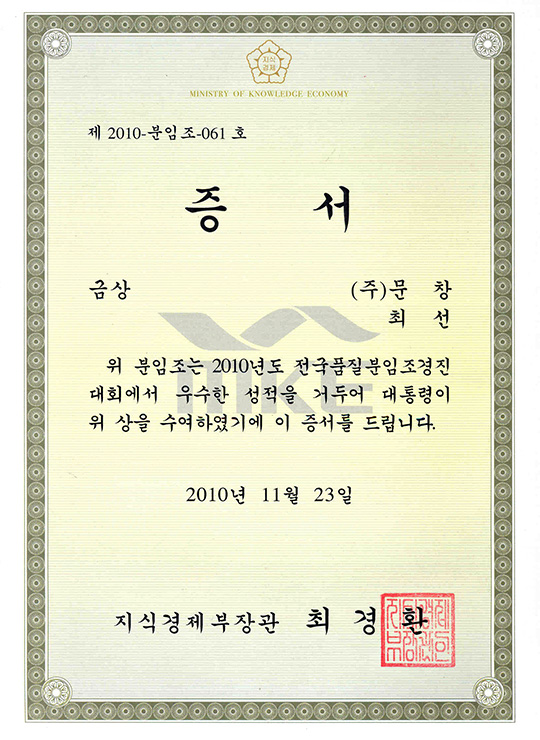 지식
경제
MINISTRY OF KNOWLEDGE ECONOMY
제 2010-분임조-061 호
증 서
금상 (주)문 창
최 선
MKE
위 분임조는 2010년도 전국품질분임조경진
대회에서 우수한 성적을 거두어 대통령이
위 상을 수여하였기에 이 증서를 드립니다.
2010년 11월 23일
지식경제부장관 최 경 환